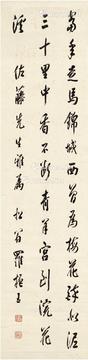 當年走馬錦城西曾為梅花醉似泥
二十里中香不斷青羊宮到浣花
溪 佑藤先生雅屬 松翁羅振玉